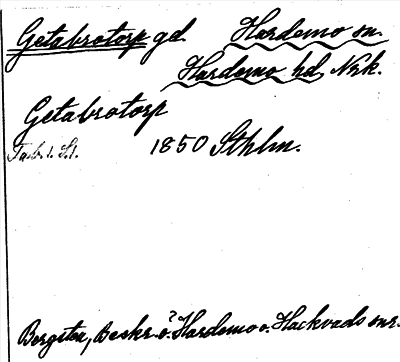 Getabrotorp gd. Hardemo sn.
Hardemo hd, Nrk.
Getabrotorp
1850 Sthlm.
Bergsten, Beskr. ö. Hardemo o. Hackvads snr.